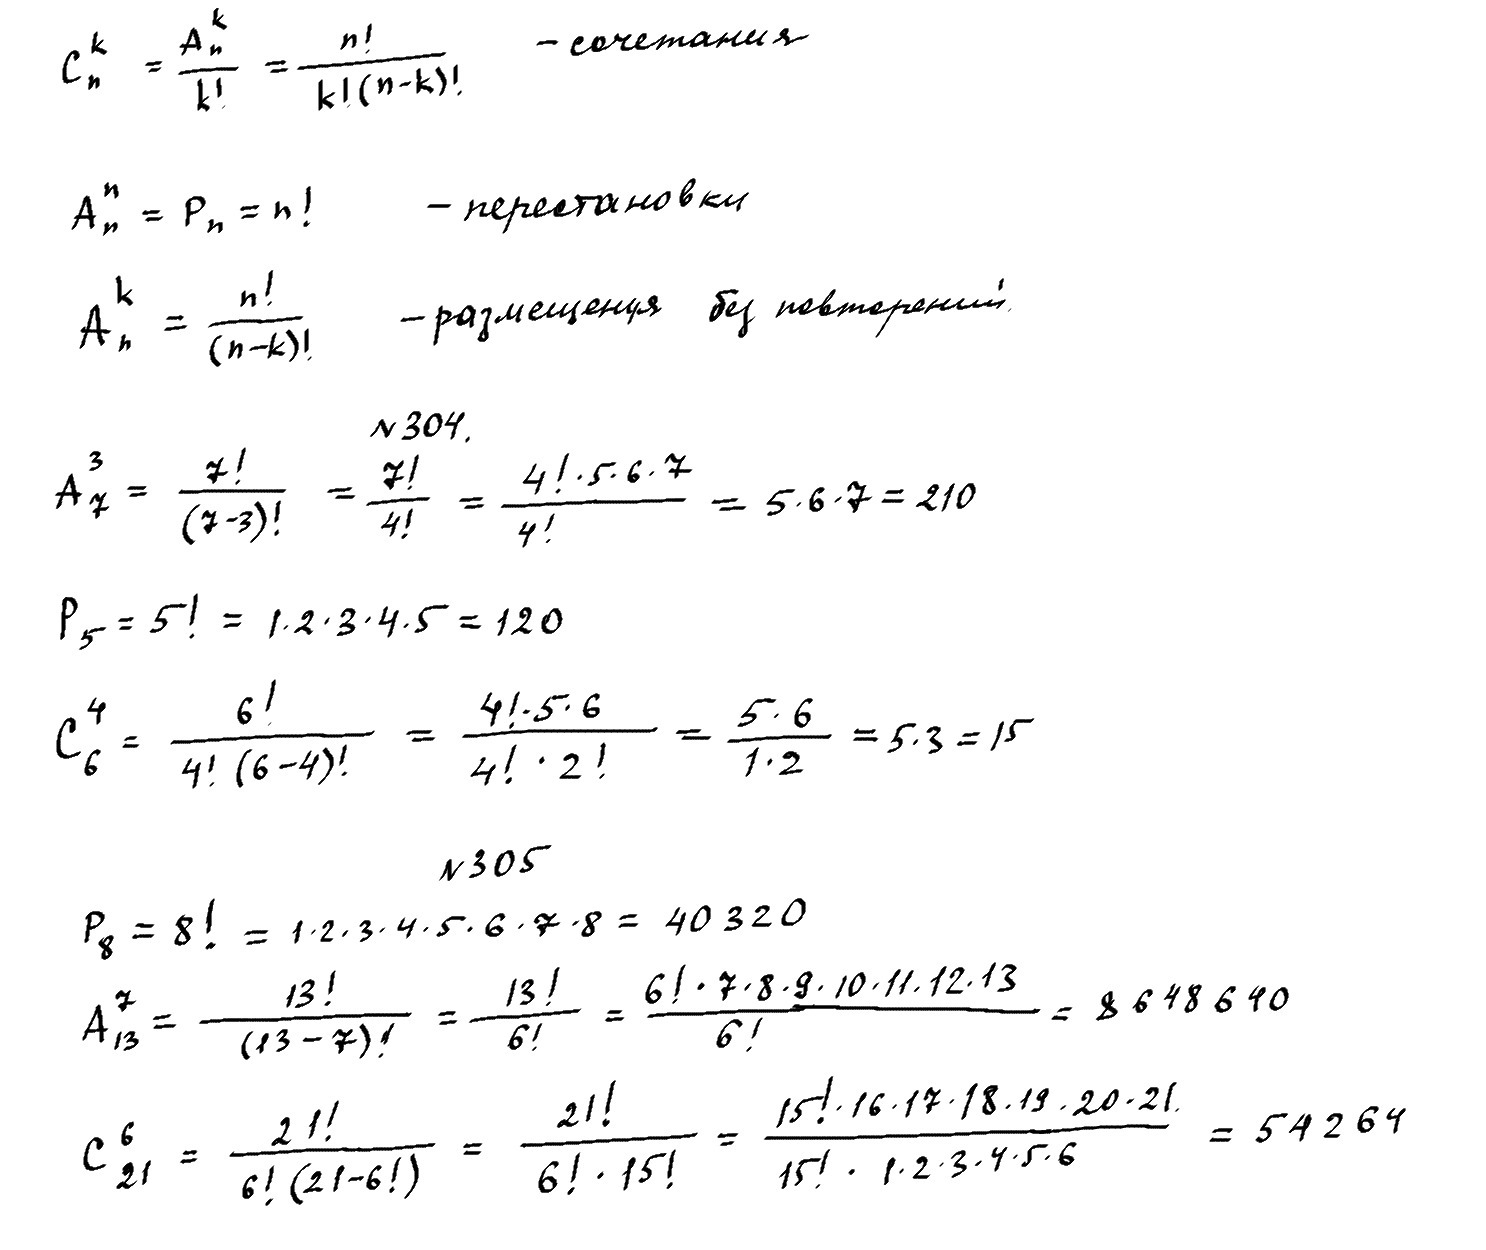 C_n^k = A_n^k / k! = n! / k!(n-k)! - сочетания
A_n^n = P_n = n! - перестановки
A_n^k = n! / (n-k)! - размещения без повторений
N304.
A_7^3 = 7! / (7-3)! = 7! / 4! = 4!·5·6·7 / 4! = 5·6·7 = 210
P_5 = 5! = 1·2·3·4·5 = 120
C_6^4 = 6! / 4!(6-4)! = 4!·5·6 / 4!·2! = 5·6 / 1·2 = 5·3 = 15
N305
P_8 = 8! = 1·2·3·4·5·6·7·8 = 40320
A_13^7 = 13! / (13-7)! = 13! / 6! = 6!·7·8·9·10·11·12·13 / 6! = 8648640
C_21^6 = 21! / 6!(21-6!) = 21! / 6!·15! = 15!·16·17·18·19·20·21 / 15!·1·2·3·4·5·6 = 54264